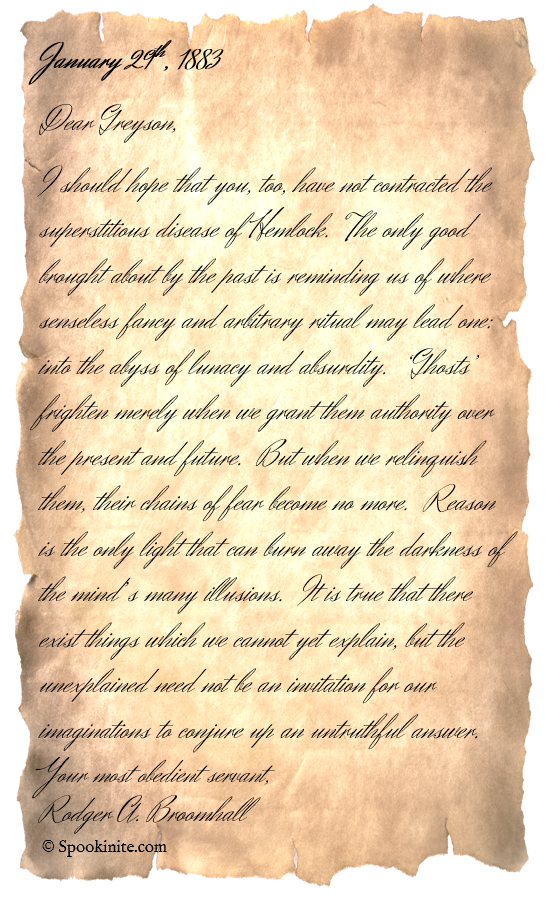 January 29th, 1883
Dear Greyson,
I should hope that you, too, have not contracted the
superstitious disease of Hemlock.  The only good
brought about by the past is reminding us of where
senseless fancy and arbitrary ritual may lead one:
into the abyss of lunacy and absurdity.  'Ghosts'
frighten merely when we grant them authority over
the present and future.  But when we relinquish
them, their chains of fear become no more.  Reason
is the only light that can burn away the darkness of
the mind's many illusions.  It is true that there
exist things which we cannot yet explain, but the
unexplained need not be an invitation for our
imaginations to conjure up an untruthful answer.
Your most obedient servant,
Rodger A. Broomhall
© Spookinite.com